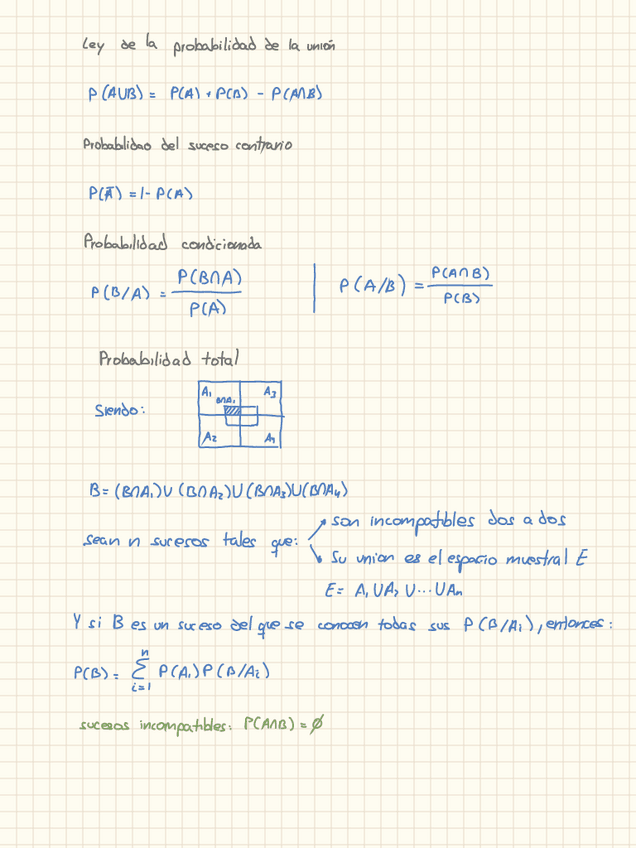 Ley de la probabilidad de la unión
P(A∪B) = P(A) + P(B) - P(A∩B)
Probabilidad del suceso contrario
P(Ā) = 1 - P(A)
Probabilidad condicionada
P(B/A) = P(B∩A) / P(A) | P(A/B) = P(A∩B) / P(B)
Probabilidad total
Siendo:
A₁ B∩A₁ A₃
A₂ A₄
B = (B∩A₁) ∪ (B∩A₂) ∪ (B∩A₃) ∪ (B∩A₄)
son incompatibles dos a dos
sean n sucesos tales que:
su union es el espacio muestral E
E = A₁ ∪ A₂ ∪ ... ∪ Aₙ
Y si B es un suceso del que se conocen todas sus P(B/Aᵢ), entonces:
P(B) = ∑ᵢ₌₁ⁿ P(Aᵢ) P(B/Aᵢ)
sucesos incompatibles: P(A∩B) = ∅